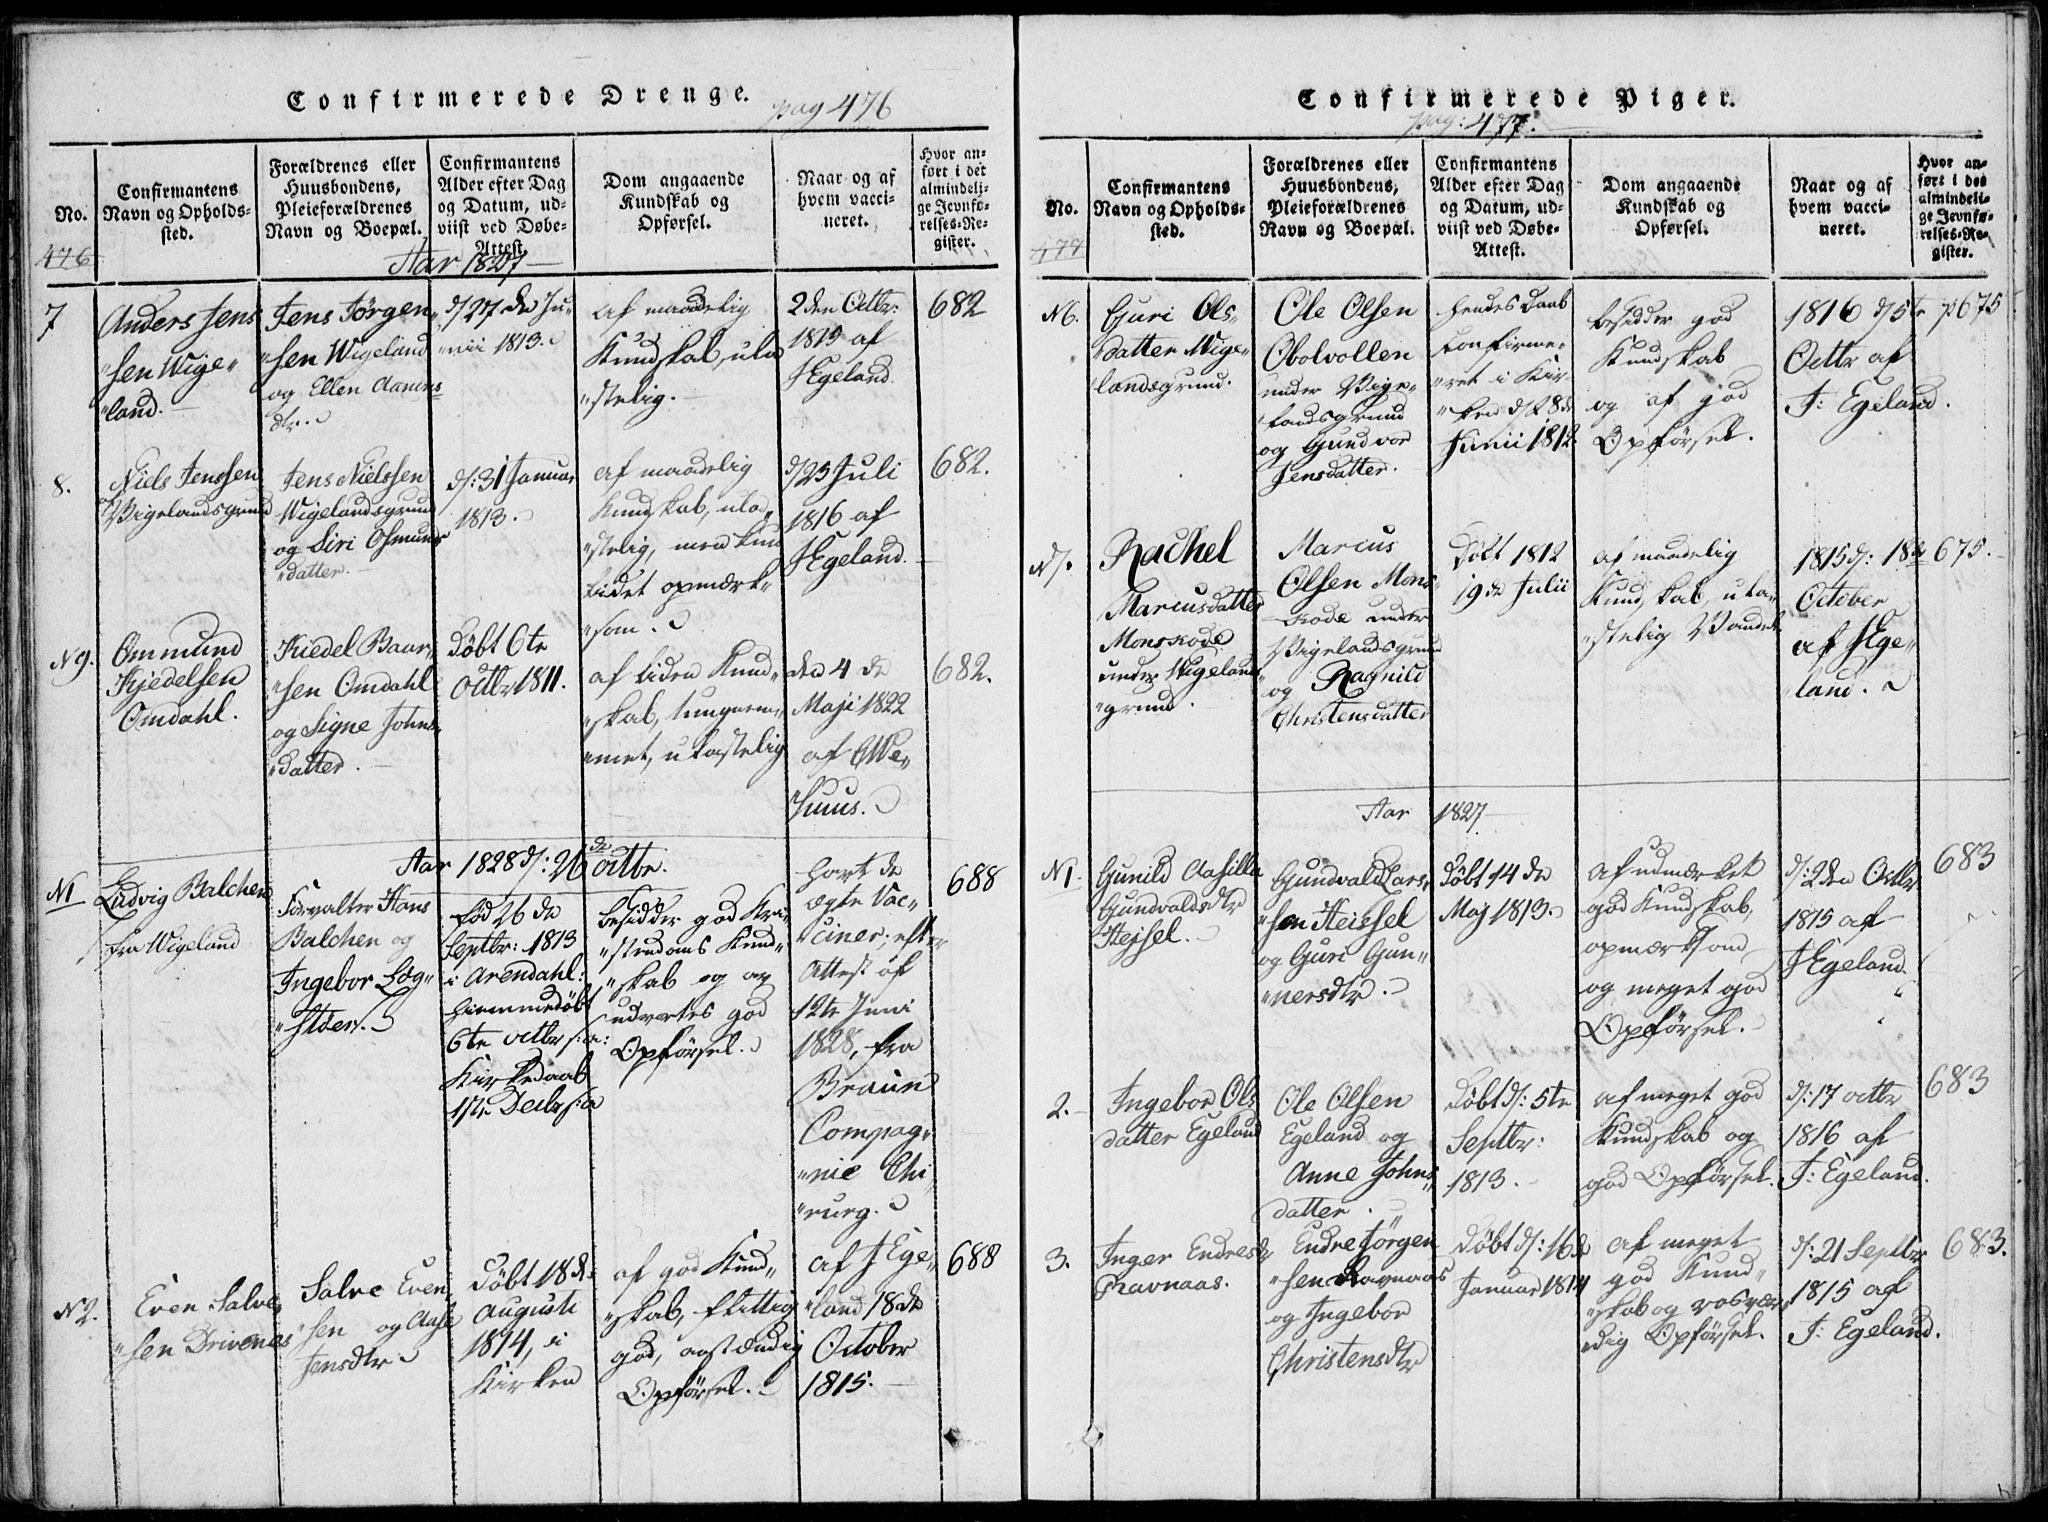 Confirmerede Drenge.
pag 476
No.
Confirmantens
Navn og Opholds-
sted.
Forældrenes eller
Huusbondens,
Pleieforældrenes
Navn og Boepæl.
Confirmantens
Alder efter Dag
og Datum, ud-
viist ved Døbe-
Attest.
Dom angaaende
Kundskab og
Opførsel.
Naar og af
hvem vacci-
neret.
Hvor an-
ført i det
almindeli-
ge Jevnfø-
relses-Re-
gister.
476
Aar 1827
7
Anders Jens
"sen Wige"
"land.
Jens Jørgen"
"sen Wigeland
og Ellen Aanens
dtr.
d/27 de Ju"
"nii 1813.
af maadelig
Kundskab, ula
"stelig.
2den Octbr:
1815 af
J Egeland.
682
8.
Niels Jenssen
Wigelandsgrund
Jens Nielssen
Wigelandsgrund
og Siri Osmunds
"datter.
d/: 31 Januar
1813.
af maadelig
Kundskab, ula"
"stelig, men kun
lidet opmærk"
"som.
d/23 Juli
1816 af
J Egeland.
682.
N9.
Ommund
Kjedelsen
Omdahl.
Kiedel Baar"
"sen Omdahl
og Signe Johns"
"datter.
Døbt 6te
octbr 1811.
af liden Kund"
"skab, tungnem"
"met, ulastelig
den 4 de
Maji 1822
af E We"
"huus.
682.
Aar 1828 d/: 26 de octbr.
N1
Ludvig Balchen
fra Wigeland
Forvalter Hans
Balchen og
Ingebor Løg"
"støer.
Fød 26 de
Septbr: 1813
i Arendahl:
hiemmedøbt
6te octbr s: a:
Kirkedaab
17te Decbr s: a
besidder god Kri"
"stendoms Kund"
"skab og af
udvortes god
Opførsel.
havt de
ægte Vac"
"ciner, efter
Attest af
12te Juni
1828, fra
Braun
Compag"
"nie Chi"
"rurg.
688
N2.
Even Salve"
"sen Drivenes
Salve Even
sen og Aase
Jensdtr
Døbt 18 de
Augusti
1814, i
Kirken
af god Kund"
"skab, flittig
god, anstændig
Opførsel.
af J Ege"
"land 18 de
October
1815.
688
Confirmerede Piger.
pag: 477.
No.
Confirmantens
Navn og Opholds-
sted.
Forældrenes eller
Huusbondens,
Pleieforældrenes
Navn og Boepæl.
Confirmantens
Alder efter Dag
og Datum, ud-
viist ved Døbe-
Attest.
Dom angaaende
Kundskab og
Opførsel.
Naar og af
hvem vacci-
neret.
Hvor an-
ført i det
almindeli-
ge Jevnfø-
relses-Re-
gister.
477
N6.
Guri Ols"
"datter Wige"
"landsgrund.
Ole Olsen
Obolvollen
under Wige"
"landsgrund
og Gundvor
Jensdatter.
hendes Daab
confirme"
"ret i Kir"
"ken d/28 de
Junii 1812.
besidder god
Kundskab
og af god
Opførsel.
1816 d/5te
Octbr af
J: Egeland.
p675
N7.
Rachel
Marcusdatter
Monskode
under Wigelands
"grund.
Marcus
Olsen Mons"
"kode under
Wigelandsgrund
og Ragnild
Christensdatter
Døbt 1812
19 de Julii
af maadelig
Kundskab, ula"
"stelig Vandel.
1815 d/: 18 de
October
af J Ege"
"land.
675.
Aar 1827
N1.
Gunild Aasille
Gundvaldsdtr
Heisel.
Gundvald Lars"
"sen Heissel
og Guri Gun"
"nersdtr.
Døbt 14 de
Maj 1813.
af udmærket
god Kundskab,
opmærksom
og meget god
Opførsel.
d/: 2den Octbr
1815 af
J Egeland.
683
2.
Ingebor Ols
datter Egeland
Ole Olsen
Egeland og
Anne Johns"
datter.
Døbt d/: 5te
Septbr:
1813.
af meget god
Kundskab og
god Opførsel.
d/: 17 octbr
1816 af
J: Egeland.
683
3.
Inger Endresdtr
Ravnaas.
Endre Jørgen
"sen Ravnaas
og Ingebor
Christensdtr
Døbt d/: 16 de
Januar 1814
af meget
god Kund"
"skab og rosvær"
"dig Opførsel.
d/: 21 Septbr
1815 af
J: Egeland.
683.